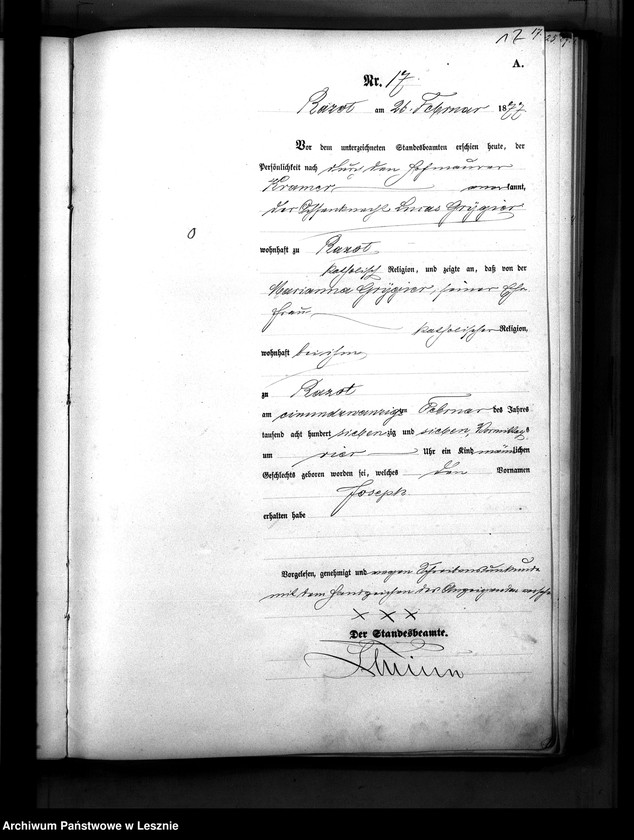 17
A.
Nr. 17.
Razot am 26. Februar 1877
Vor dem unterzeichneten Standesbeamten erschien heute, der
Persönlichkeit nach durch den
Kramer kannt,
der Ochsenknecht Lucas Grygier
wohnhaft zu Razot
katholisch Religion, und zeigte an, daß von der
Marianna Grygier, seiner Ehe
frau
katholischer Religion,
wohnhaft bei ihm,
zu Razot
am einundzwanzig Februar des Jahres
tausend acht hundert siebenzig und sieben, Vormittags
um vier Uhr ein Kind männlichen
Geschlechts geboren worden sei, welches den Vornamen
Joseph
erhalten habe
Vorgelesen, genehmigt und wegen Schreibensunkunde
mit dem Handzeichen des Anzeigenden versehen
× × ×
Der Standesbeamte.
Archiwum Państwowe w Lesznie